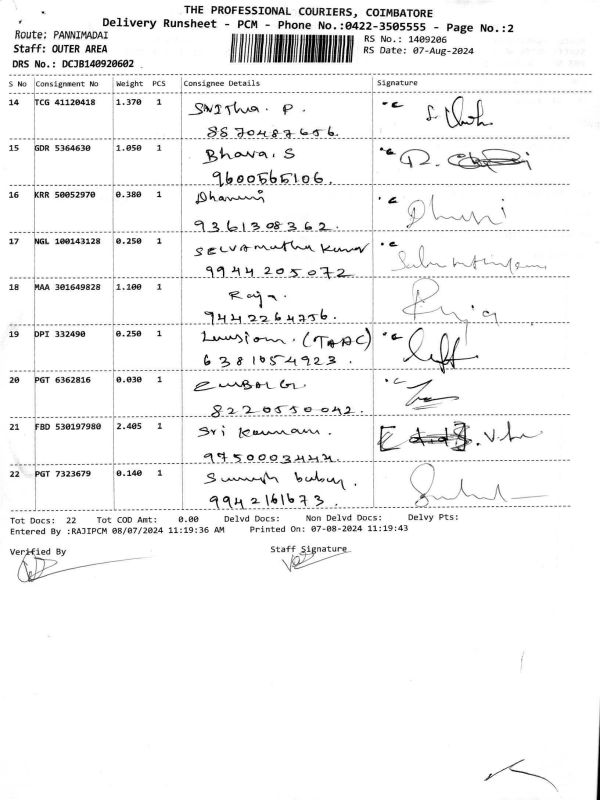 THE PROFESSIONAL COURIERS, COIMBATORE
Delivery Runsheet - PCM - Phone No.:0422-3505555 - Page No.:2
Route: PANNIMADAI
RS No.: 1409206
Staff: OUTER AREA
RS Date: 07-Aug-2024
DRS No.: DCJB140920602
S No Consignment No Weight PCS Consignee Details Signature
14 TCG 41120418 1.370 1 P.
8870487656.
15 GDR 5364630 1.050 1 Bhava. S
9600565106.
16 KRR 50052970 0.380 1
9361308362.
17 NGL 100143128 0.250 1 SELVAmuthu Kumar
9944205072
18 MAA 301649828 1.100 1 Raja.
9442264756.
19 DPI 332490 0.250 1 (TAAC)
6381054923.
20 PGT 6362816 0.030 1
8220550042.
21 FBD 530197980 2.405 1 Sri
9750003444.
22 PGT 7323679 0.140 1 babu.
9942161673
Tot Docs: 22 Tot COD Amt: 0.00 Delvd Docs: Non Delvd Docs: Delvy Pts:
Entered By :RAJIPCM 08/07/2024 11:19:36 AM Printed On: 07-08-2024 11:19:43
Verified By Staff Signature